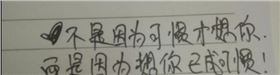 不是因为习惯才想你.
而是因为想你已成习惯!